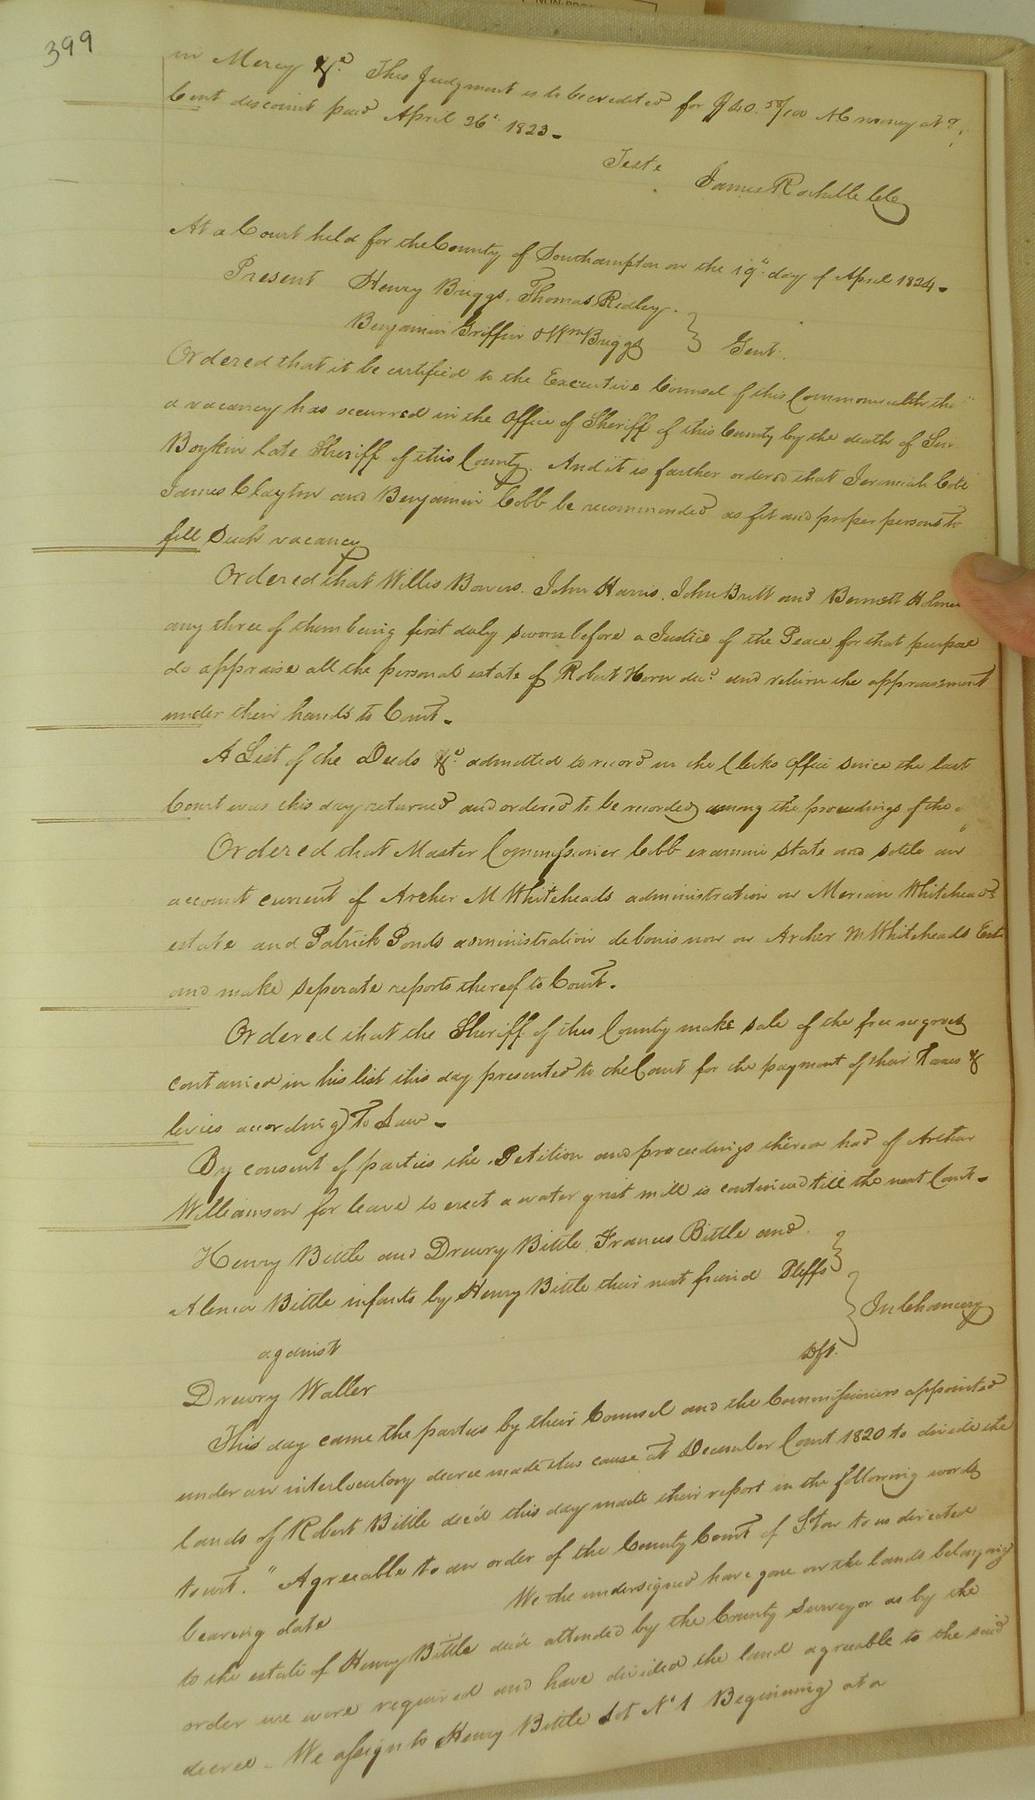 399
in Mercy &c. This Judgment is to be credited for $40.58/100 NC money at 9
Cent discount paid April 26th 1823.
Teste James Rochelle Clk
At a Court held for the County of Southampton on the 19th day of April 1824.
Present Henry Briggs, Thomas Ridley,
Benjamin Griffin & Wm Briggs } Gent.
Ordered that it be certified to the Executive Counsel of this Commonwealth that
a vacancy has occurred in the Office of Sheriff of this County by the death of
Boykin late Sheriff of this County. And it is farther ordered that Jeremiah Cobb
James Clayton and Benjamin Cobb be recommended as fit and proper persons to
fill Such vacancy
Ordered that Willis Bowers, John Harris, John Britt and Bennett Holmes
any three of them being first duly sworn before a Justice of the Peace for that purpose
do appraise all the personal estate of Robert Horn decd and return the appraisement
under their hands to Court.
A List of the Deeds &c. admitted to record in the Clerks Office since the last
Court was this day returned and ordered to be recorded among the proceedings of the
Ordered that Master Commissioner Cobb examine state and settle an
account current of Archer M Whiteheads administration on Merian Whiteheads
estate and Patrick Ponds administration de bonis non on Archer M Whiteheads Est
and make seperate reports thereof to Court.
Ordered that the Sheriff of this County make sale of the free negroes
contained in his list this day presented to the Court for the payment of their taxes &
levies according to Law.
By consent of parties the Petition and proceedings thereon had of Arthur
Williamson for leave to erect a water grist mill is continued till the next Court.
Henry Bittle and Drewry Bittle, Frances Bittle and
Bittle infants by Henry Bittle their next friend Pltffs }
against } In Chancery
Drewry Waller Dft.
This day came the parties by their Counsel and the Commissioners appointed
under an interlocutory decree made this cause at December Court 1820 to divide the
lands of Robert Bittle decd this day made their report in the following words
towit. "Agreeable to an order of the County Court of S'ton to us directed
bearing date We the undersigned have gone on the lands belonging
to the estate of Henry Bittle decd attended by the County Surveyor as by the
order we were required and have divided the land agreeable to the said
decree. We assign to Henry Bittle Lot No 1 Beginning at a